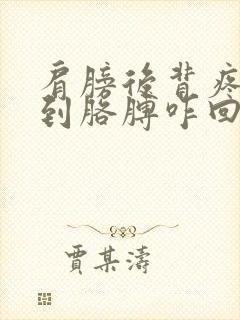 肩膀後背疼
到胳膊咋回
賈某濤